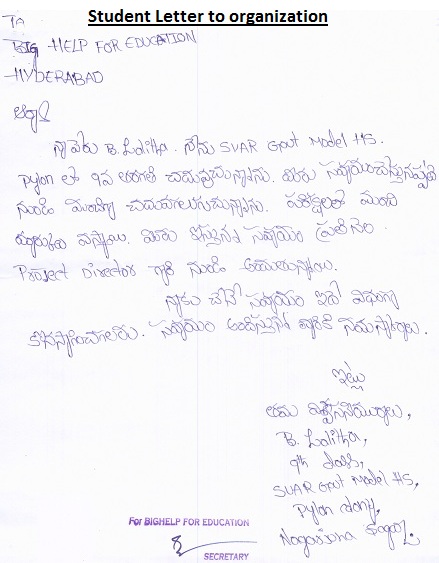 Student Letter to organization
To
BIG HELP FOR EDUCATION
HYDERABAD
ఆర్యా
నా పేరు B. Lalitha. నేను SVAR Govt Model HS.
Pylon లో 9వ తరగతి చదువుచున్నాను. మీరు సహాయంచేస్తునప్పటి
నుండి మంచిగా చదువగలుగుచున్నాను. పరిక్షలలో మంచి
మార్కులు వస్తాయి. మీరు ఇస్తునన సహాయం ప్రతినెల
Project Director గారి నుండి అందుతున్నాయి.
నాకు చేసే సహాయం ఇదే విధంగా
కొనసాగించగలరు. సహాయం అందిస్తునన వారికి నమస్కారాలు.
ఇట్లు
తమ విశ్వసనీయురాలు,
B. Lalitha,
9th class,
SVAR Govt Model HS,
Pylon colony,
Nagarjuna Sagar.
For BIGHELP FOR EDUCATION
SECRETARY